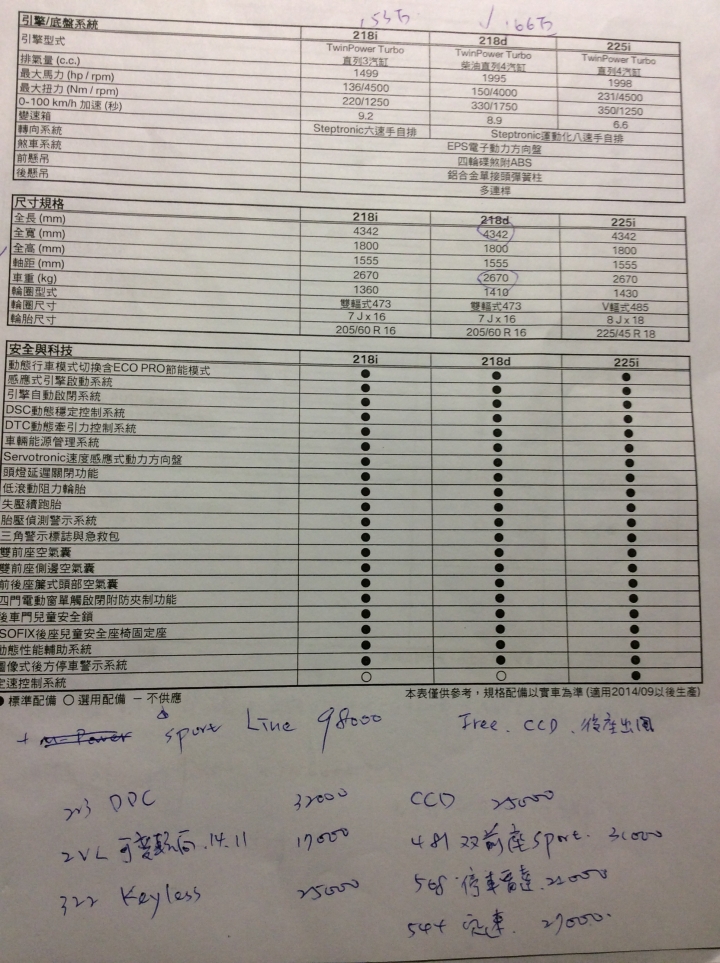 .155万 √.166万
引擎/底盤系統 218i 218d 225i
引擎型式 TwinPower Turbo 直列3汽缸 TwinPower Turbo 柴油直列4汽缸 TwinPower Turbo 直列4汽缸
排氣量 (c.c.) 1499 1995 1998
最大馬力 (hp / rpm) 136/4500 150/4000 231/4500
最大扭力 (Nm / rpm) 220/1250 330/1750 350/1250
0-100 km/h 加速 (秒) 9.2 8.9 6.6
變速箱 Steptronic六速手自排 Steptronic運動化八速手自排
轉向系統 EPS電子動力方向盤
煞車系統 四輪碟煞附ABS
前懸吊 鋁合金單接頭彈簧柱
後懸吊 多連桿
尺寸規格 218i 218d 225i
全長 (mm) 4342 4342 4342
全寬 (mm) 1800 1800 1800
全高 (mm) 1555 1555 1555
軸距 (mm) 2670 2670 2670
車重 (kg) 1360 1410 1430
輪圈型式 雙輻式473 雙輻式473 V輻式485
輪圈尺寸 7 J x 16 7 J x 16 8 J x 18
輪胎尺寸 205/60 R 16 205/60 R 16 225/45 R 18
安全與科技 218i 218d 225i
動態行車模式切換含ECO PRO節能模式 ● ● ●
感應式引擎啟動系統 ● ● ●
引擎自動啟閉系統 ● ● ●
DSC動態穩定控制系統 ● ● ●
DTC動態牽引力控制系統 ● ● ●
車輛能源管理系統 ● ● ●
Servotronic速度感應式動力方向盤 ● ● ●
頭燈延遲關閉功能 ● ● ●
低滾動阻力輪胎 ● ● ●
失壓續跑胎 ● ● ●
胎壓偵測警示系統 ● ● ●
三角警示標誌與急救包 ● ● ●
雙前座空氣囊 ● ● ●
雙前座側邊空氣囊 ● ● ●
前後座簾式頭部空氣囊 ● ● ●
四門電動窗單觸啟閉附防夾制功能 ● ● ●
後車門兒童安全鎖 ● ● ●
SOFIX後座兒童安全座椅固定座 ● ● ●
動態性能輔助系統 ● ● ●
圖像式後方停車警示系統 ● ● ●
定速控制系統 ○ ○ ●
● 標準配備 ○ 選用配備 － 不供應 本表僅供參考，規格配備以實車為準 (適用2014/09以後生產)
+ M-Power Sport Line 98000 Free. CCD. 後座出風
223 DDC 32000 CCD 25000
2VL 可變轉向.14.11 17000 481 双前座sport. 31000
322 Keyless 25000 508 停車雷達.22000
544 定速. 27000.